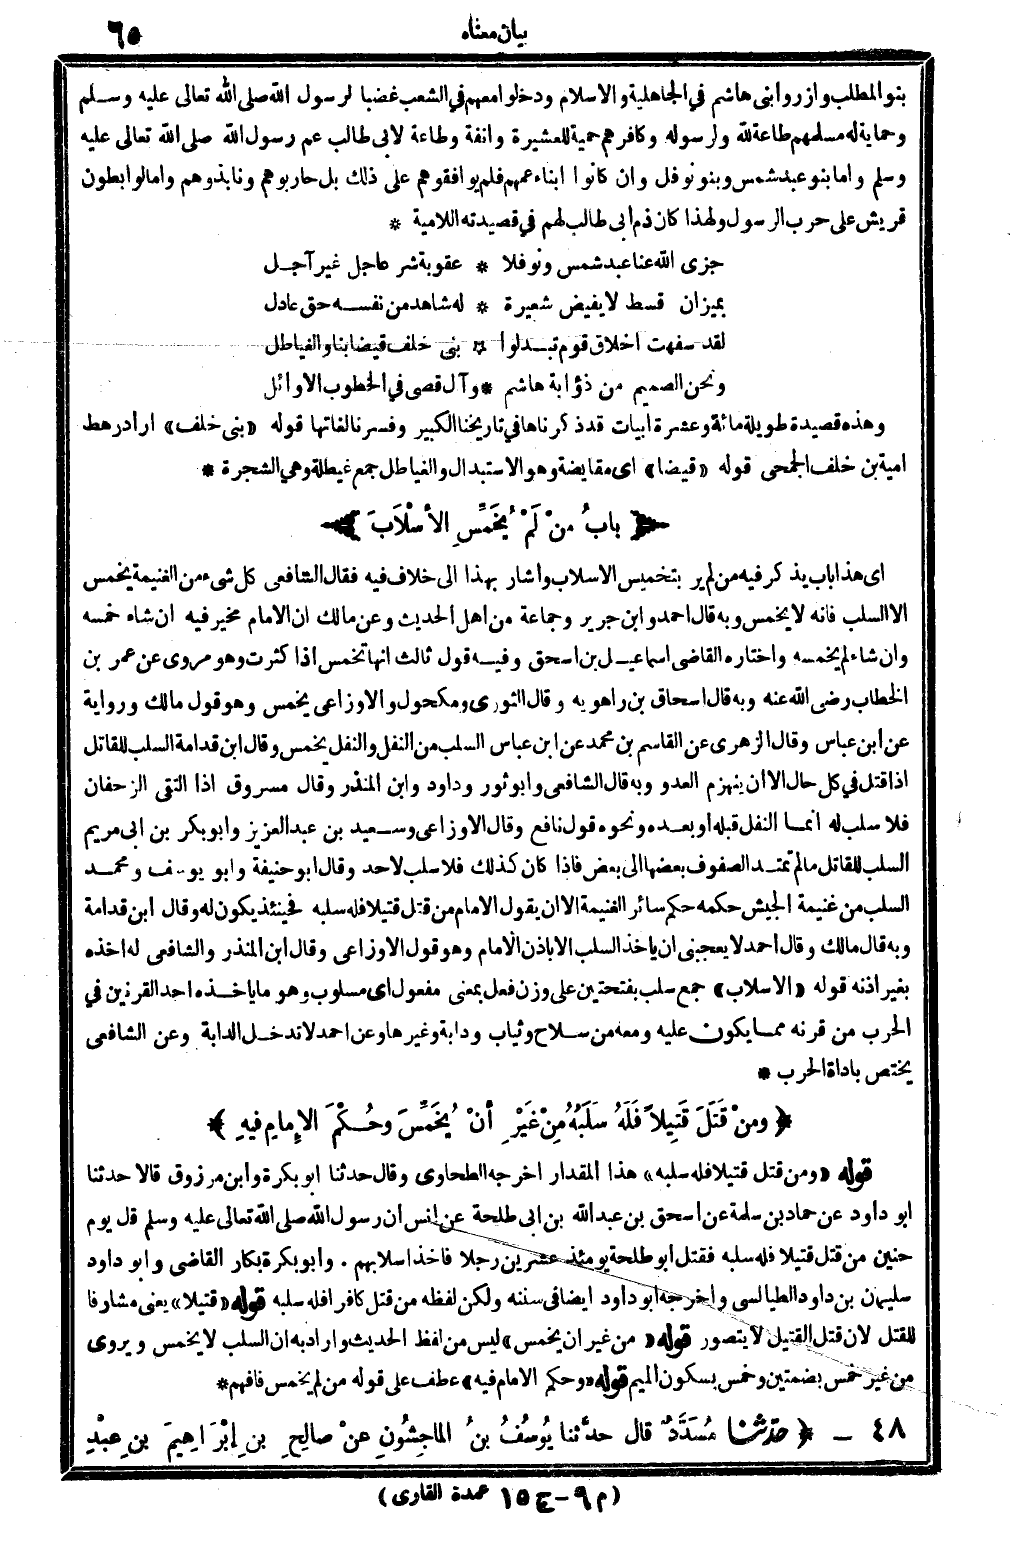 بيان معناه
٦٥
بنو المطلب وازروا بنى هاشم في الجاهلية والاسلام ودخلوا معهم في الشعب غضبا لرسول الله صلى الله تعالى عليه وسلم
وحماية له مسلمهم طاعة لله ولرسوله وكافرهم حمية للعشيرة وانفة وطاعة لابى طالب عم رسول الله صلى الله تعالى عليه
وسلم واما بنو عبد شمس وبنو نوفل وان كانوا ابناء عمهم فلم يوافقوهم على ذلك بل حاربوهم ونابذوهم وامالوا بطون
قريش على حرب الرسول ولهذا كان ذم ابى طالب لهم في قصيدته اللامية *
جزى الله عنا عبد شمس ونوفلا * عقوبة شر عاجل غير آجل
بميزان قسط لا يفيض شعيرة * له شاهد من نفسه حق عادل
لقد سفهت اخلاق قوم تبدلوا * بنى خلف قيضا بنا والغياطل
ونحن الصميم من ذؤابة هاشم * وآل قصى في الخطوب الاوائل
وهذه قصيدة طويلة مائة وعشرة ابيات قد ذكرناها في تاريخنا الكبير وفسرنا لغاتها قوله «بنى خلف» اراد رهط
امية بن خلف الجمحى قوله «قيضا» اى مقايضة وهو الاستبدال والغياطل جمع غيطلة وهي الشجرة *
﴿ بابُ منْ لَمْ يُخَمِّسِ الأسْلَابَ ﴾
اى هذا باب يذكر فيه من لم ير بتخميس الاسلاب واشار بهذا الى خلاف فيه فقال الشافعى كل شىء من الغنيمة يخمس
الا السلب فانه لا يخمس وبه قال احمد وابن جرير وجماعة من اهل الحديث وعن مالك ان الامام مخير فيه ان شاء خمسه
وان شاء لم يخمسه واختاره القاضى اسماعيل بن اسحق وفيه قول ثالث انها تخمس اذا كثرت وهو مروى عن عمر بن
الخطاب رضى الله عنه وبه قال اسحاق بن راهويه وقال الثورى ومكحول والاوزاعى يخمس وهو قول مالك ورواية
عن ابن عباس وقال الزهرى عن القاسم بن محمد عن ابن عباس السلب من النفل والنفل يخمس وقال ابن قدامة السلب للقاتل
اذا قتل في كل حال الا ان ينهزم العدو وبه قال الشافعى وابو ثور وداود وابن المنذر وقال مسروق اذا التقى الزحفان
فلا سلب له انما النفل قبله او بعده ونحوه قول نافع وقال الاوزاعى وسعيد بن عبد العزيز وابو بكر بن ابى مريم
السلب للقاتل ما لم تمتد الصفوف بعضها الى بعض فاذا كان كذلك فلا سلب لاحد وقال ابو حنيفة وابو يوسف ومحمد
السلب من غنيمة الجيش حكمه حكم سائر الغنيمة الا ان يقول الامام من قتل قتيلا فله سلبه فحينئذ يكون له وقال ابن قدامة
وبه قال مالك وقال احمد لا يعجبنى ان ياخذ السلب الا باذن الامام وهو قول الاوزاعى وقال ابن المنذر والشافعى له اخذه
بغير اذنه قوله «الاسلاب» جمع سلب بفتحتين على وزن فعل بمعنى مفعول اى مسلوب وهو ما ياخذه احد القرنين في
الحرب من قرنه مما يكون عليه ومعه من سلاح وثياب ودابة وغيرها وعن احمد لا تدخل الدابة وعن الشافعى
يختص باداة الحرب *
﴿ ومنْ قَتَلَ قَتِيلاً فَلَهُ سَلَبُهُ مِنْ غَيْرِ أنْ يُخَمِّسَ وحُكْمَ الإمامِ فيهِ ﴾
قوله «ومن قتل قتيلا فله سلبه» هذا المقدار اخرجه الطحاوى وقال حدثنا ابو بكرة وابن مرزوق قالا حدثنا
ابو داود عن حماد بن سلمة عن اسحق بن عبد الله بن ابى طلحة عن انس ان رسول الله صلى الله تعالى عليه وسلم قال يوم
حنين من قتل قتيلا فله سلبه فقتل ابو طلحة يومئذ عشرين رجلا فاخذ اسلابهم . وابو بكرة بكار القاضى وابو داود
سليمان بن داود الطيالسى واخرجه ابو داود ايضا فى سننه ولكن لفظه من قتل كافرا فله سلبه قوله «قتيلا» يعنى مشارفا
للقتل لان قتل القتيل لا يتصور قوله «من غير ان يخمس» ليس من لفظ الحديث واراد به ان السلب لا يخمس ويروى
من غير خمس بضمتين وخمس بسكون الميم قوله «وحكم الامام فيه» عطف على قوله من لم يخمس فافهم *
٤٨ ـ ﴿ حدثنا مُسَدَّدٌ قال حدَّثنا يُوسُفُ بنُ الماجِشُونِ عنْ صالِحِ بنِ إبْرَاهِيمَ بنِ عبْدِ
(م ٩ - ج ١٥ عمدة القارى)